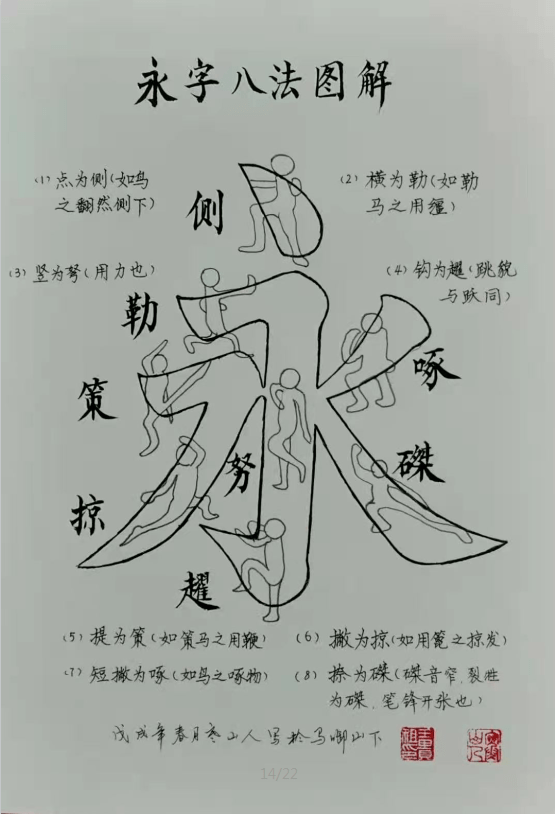 永字八法图解
(1) 点为侧(如鸟
之翻然侧下)
(2) 横为勒(如勒
马之用缰)
侧
(3) 竖为努(用力也)
(4) 钩为趯(跳貌
与跃同)
勒
啄
策
磔
努
掠
趯
(5) 提为策(如策马之用鞭)
(6) 撇为掠(如用篦之掠发)
(7) 短撇为啄(如鸟之啄物)
(8) 捺为磔(磔音窄.裂牲
为磔、笔锋开张也)
戊戌年春月 山人写於马 山下
14/22